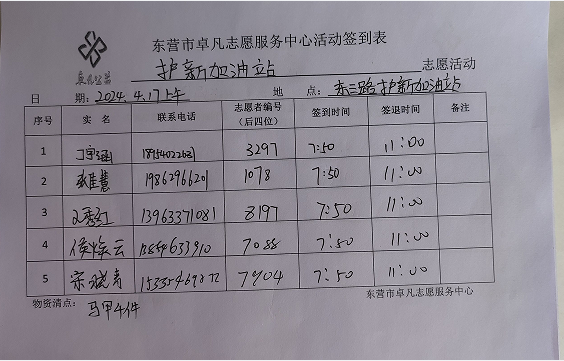 东营市卓凡志愿服务中心活动签到表
护新加油站 志愿活动
日 期：2024.4.17上午 地 点：东三路护新加油站
序号 实 名 联系电话 志愿者编号（后四位） 签到时间 签退时间 备注
1 3297 7:50 11:00
2 19862966201 1078 7:50 11:00
3 13963371081 8197 7:50 11:00
4 侯焕云 7088 7:50 11:00
5 宋晓青 7904 7:50 11:00
物资清点：马甲4件 东营市卓凡志愿服务中心